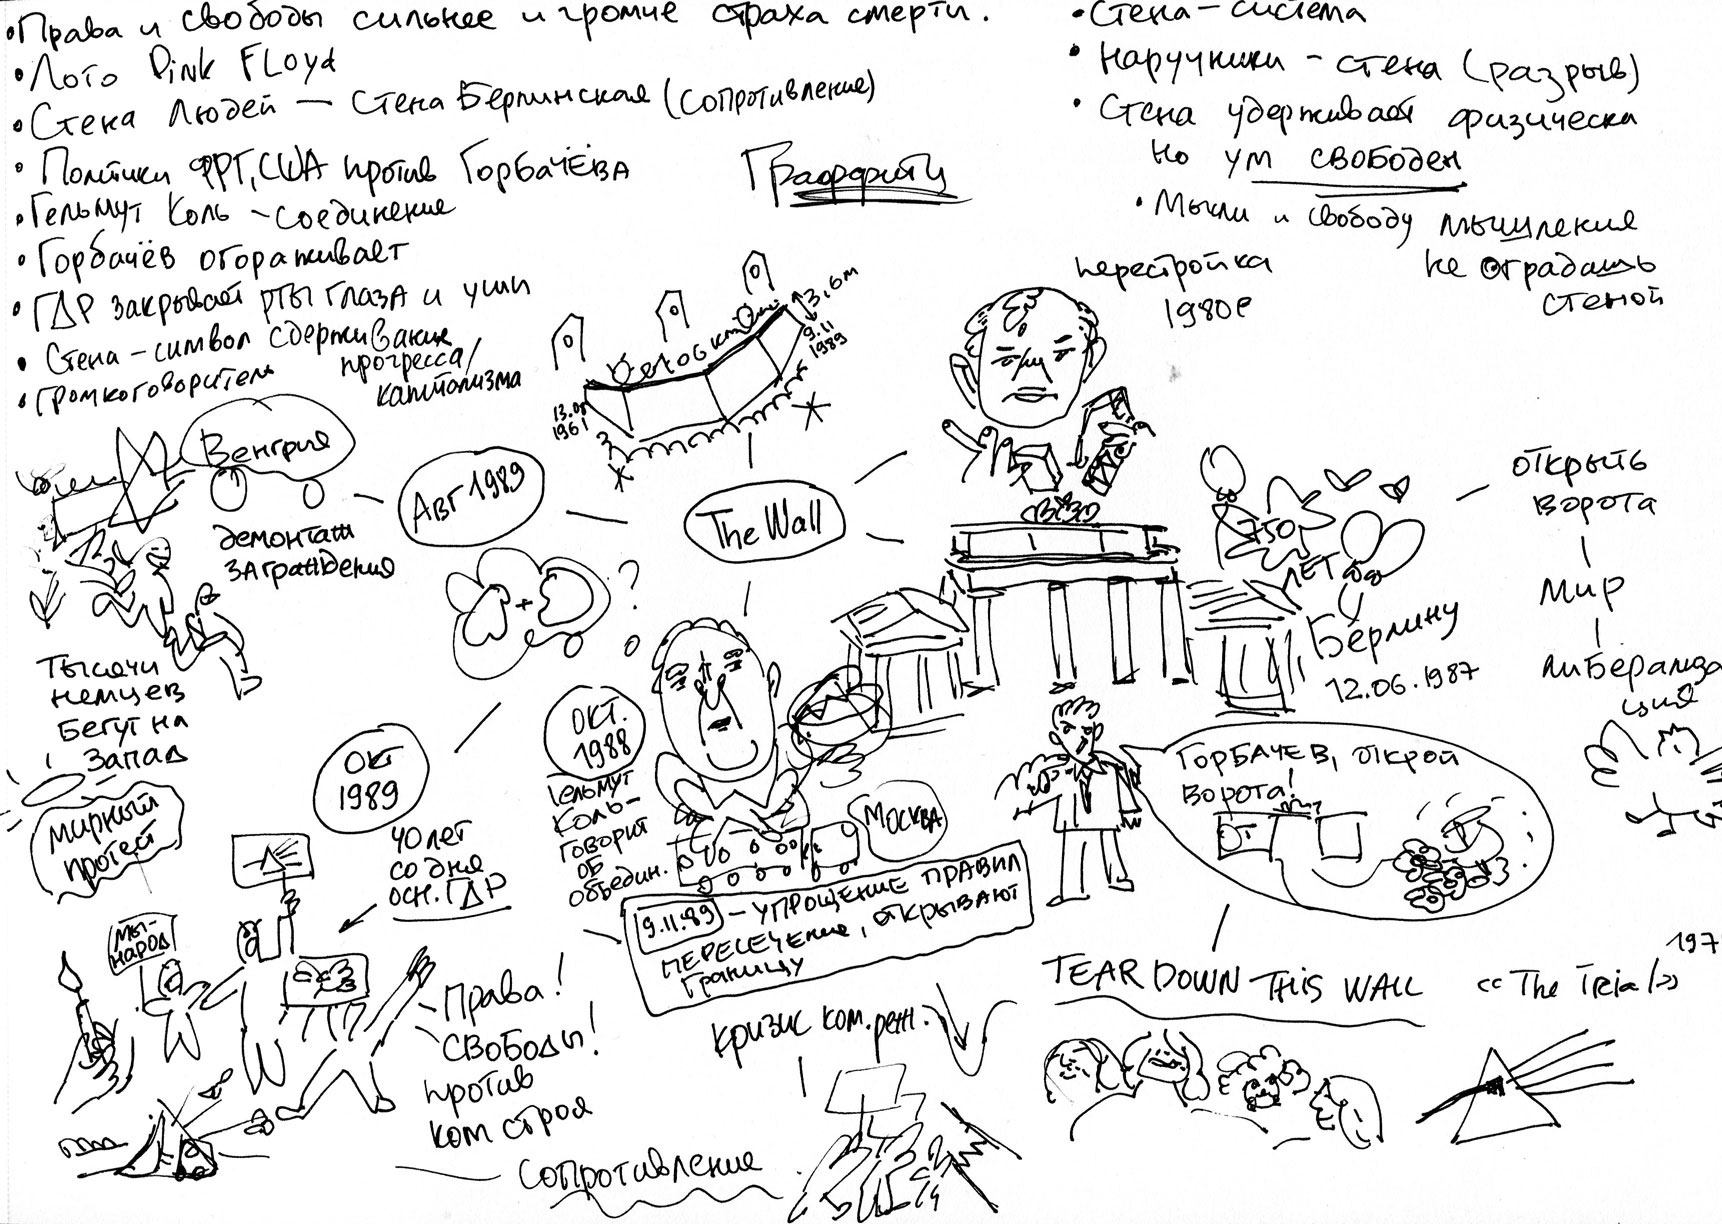 •Права и свободы сильнее и громче страха смерти.
•Лого Pink FLoyd
•Стена людей — Стена Берлинская (сопротивление)
•Политики ФРГ, США против Горбачёва
•Гельмут Коль – соединение
•Горбачёв огораживает
•ГДР закрывает рты глаза и уши
•Стена – символ сдерживания
прогресса/
капитализма
•громкоговоритель
•Стена – система
•Наручники – стена (разрыв)
•Стена удерживает физически
но ум свободен
•Мысли и свободу мышления
не оградишь
стеной
Граффити
перестройка
1980е
3,6м
9.11
1989
13.08
1961
Венгрия
демонтаж
заграждения
Авг 1989
The Wall
750
ЛЕТ
Берлину
12.06.1987
открыть
ворота
Мир
либерализа
ция
Тысячи
немцев
Бегут на
Запад
+
?
окт.
1988
Гельмут
Коль –
говорит
об
объедин.
Москва
окт
1989
40 лет
со дня
осн. ГДР
мирный
протест
мы-
народ
Права!
Свободы!
против
ком строя
Сопротивление
9.11.89 – упрощение правил
пересечения, открывают
границу
кризис ком. реж.
Горбачев, открой
ворота!
TEAR DOWN THIS WALL
«The Trial»
197